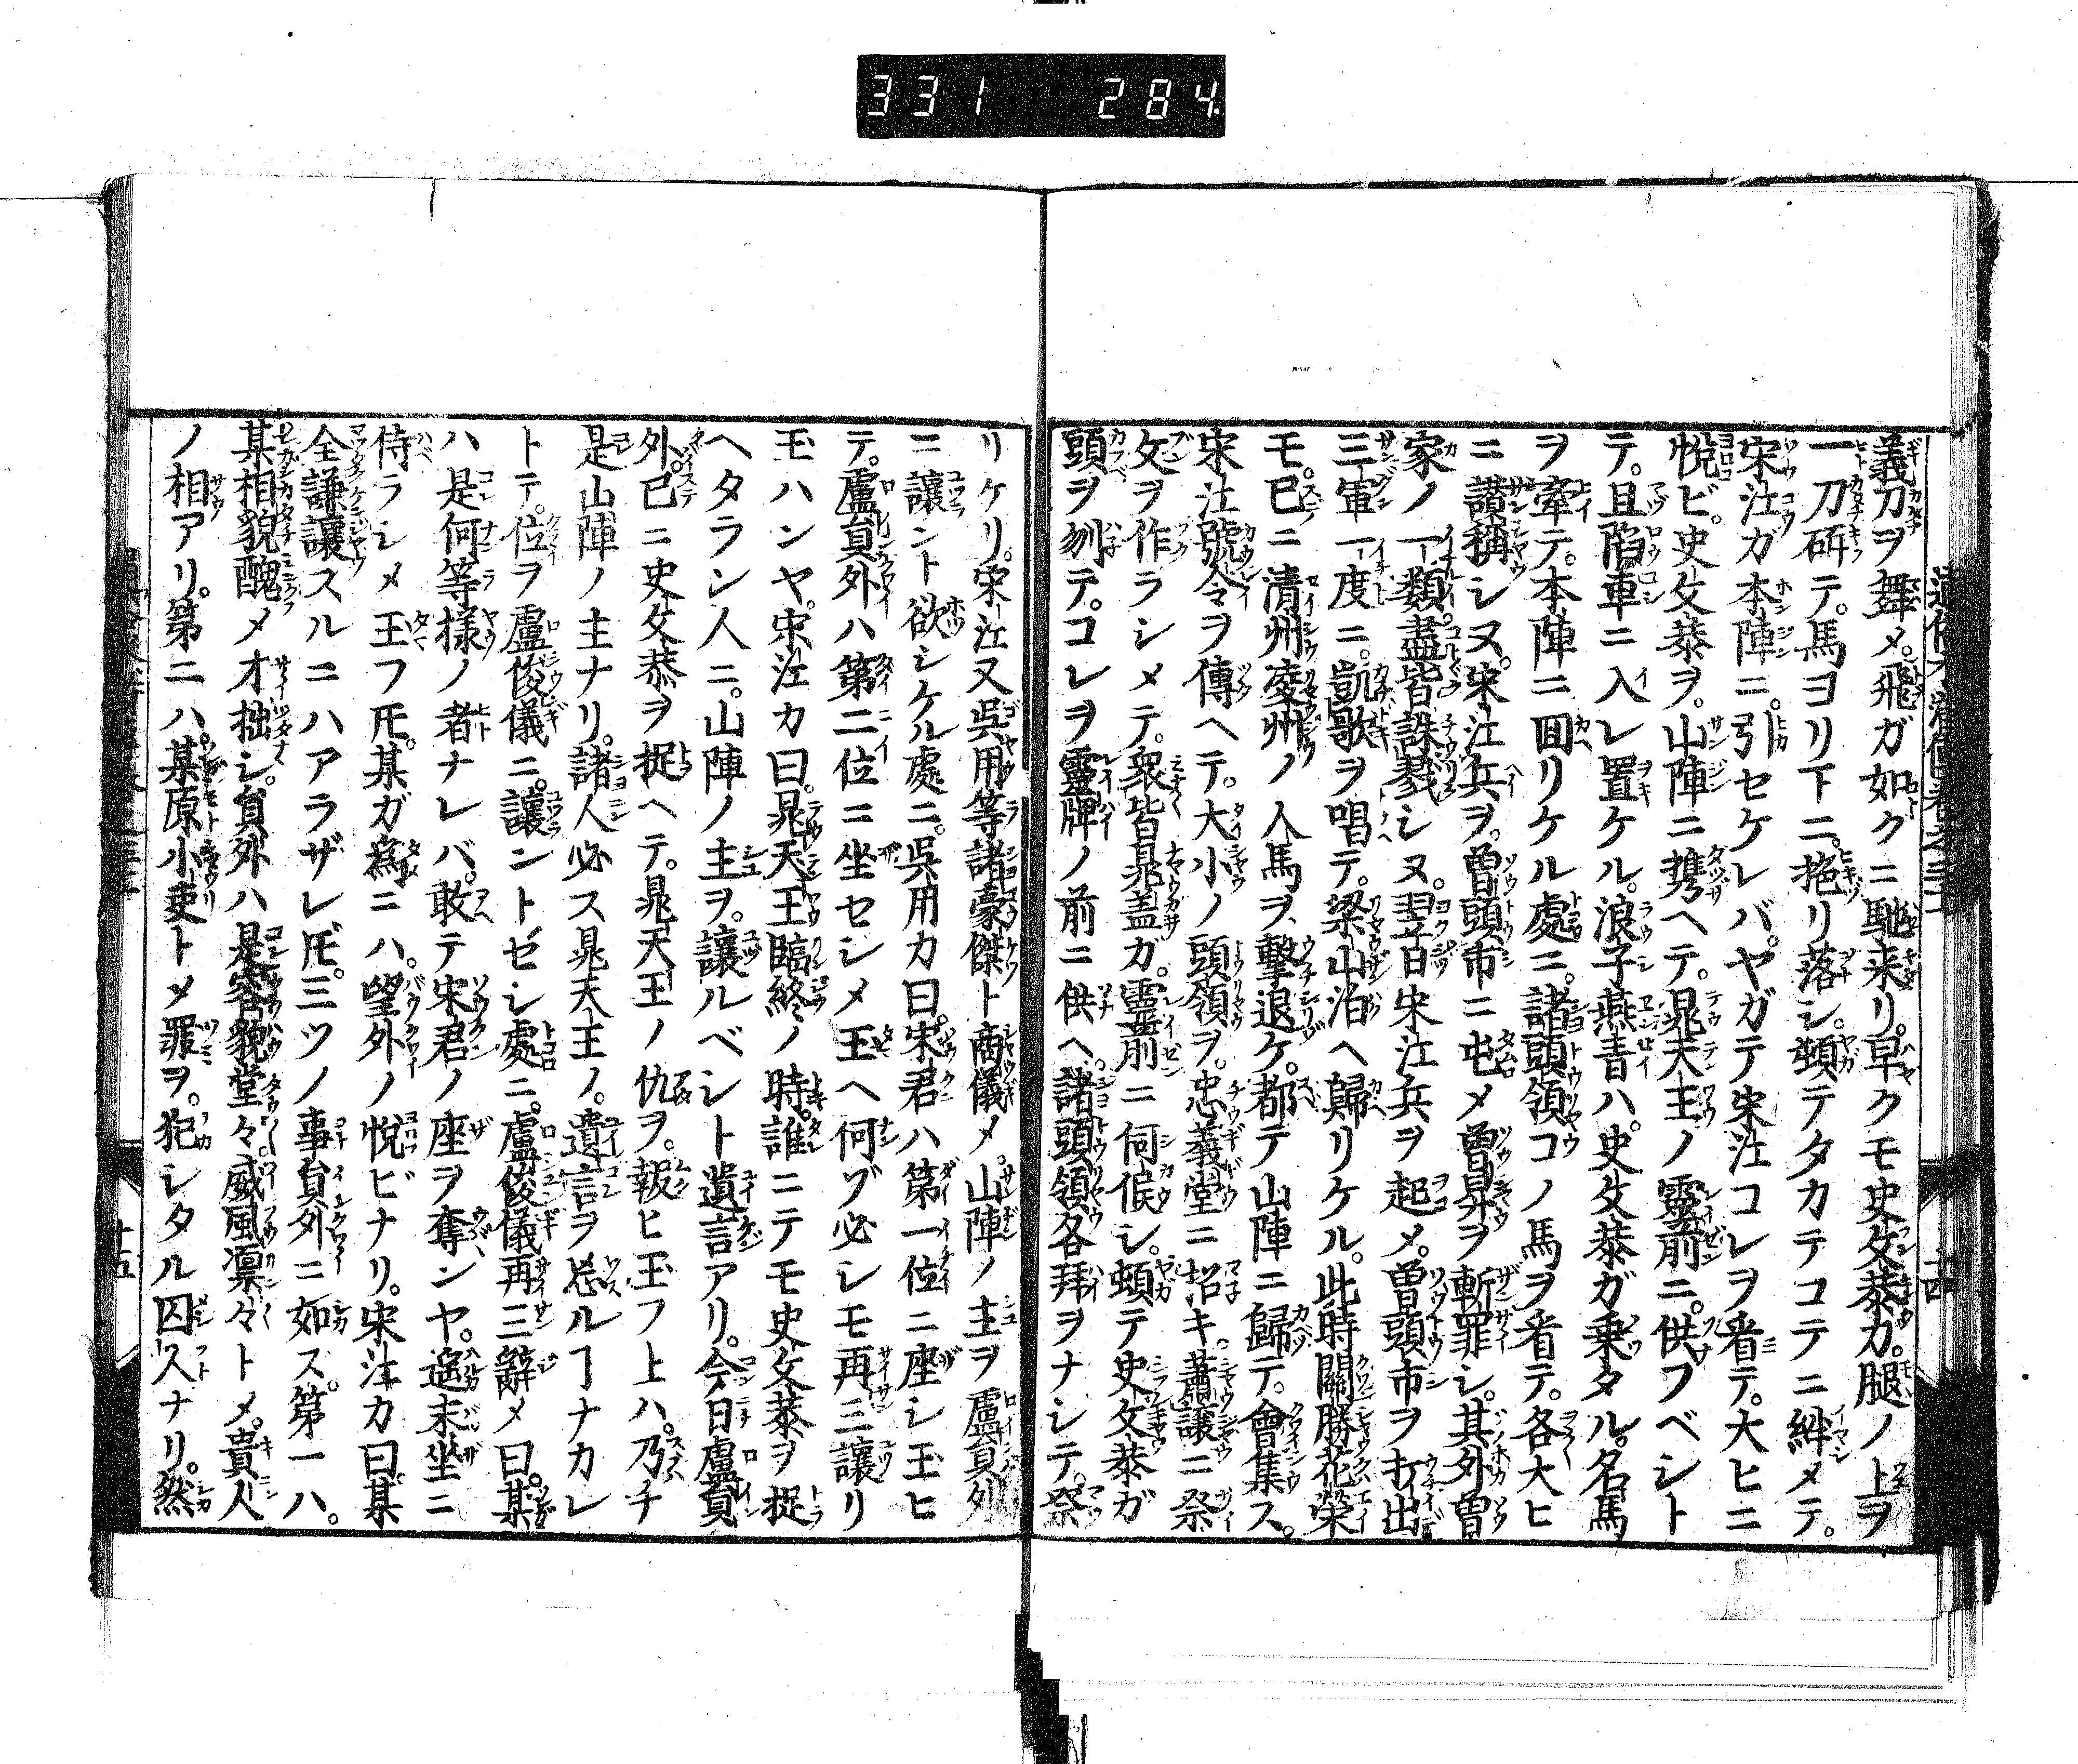 331 284
義刀ヲ舞メ飛ガ如クニ馳来リ。早クモ史文恭カ。腿ノ上ヲ
一刀斫テ。馬ヨリ下ニ。拖リ落シ。頓テタカテコテニ絆メテ。
宋江ガ本陣ニ。引セケレバ。ヤガテ宋江コレヲ看テ。大ヒニ
悦ビ。史文恭ヲ。山陣ニ携ヘテ。晁天王ノ靈前ニ。供フベシト
テ。且陷車ニ入レ置ケル。浪子燕青ハ。史文恭ガ乗タル。名馬
ヲ牽テ。本陣ニ囬リケル處ニ。諸頭領コノ馬ヲ看テ。各大ヒ
ニ讃稱シヌ。宋江兵ヲ。曽頭市ニ屯メ曽昇ヲ斬罪シ。其外曽
家ノ一類。盡皆誅戮シヌ。翌日宋江兵ヲ起メ。曽頭市ヲ打出
三軍一度ニ。凱歌ヲ唱テ。梁山泊ヘ歸リケル。此時關勝花榮
モ。已ニ清州凌州ノ人馬ヲ擊退ケ。都テ山陣ニ歸テ。會集ス。
宋江號令ヲ傳ヘテ。大小ノ頭領ヲ。忠義堂ニ招キ。蕭讓ニ祭
文ヲ作ラシメテ。衆皆晁盖ガ。靈前ニ伺候シ。頓テ史文恭ガ
頭ヲ刎テ。コレヲ靈牌ノ前ニ供ヘ。諸頭領各拜ヲナシテ。祭
リケリ。宋江又呉用等諸豪傑ト商儀メ。山陣ノ主ヲ盧貟外
ニ讓ント欲シケル處ニ。呉用カ曰。宋君ハ第一位ニ座シ玉ヒ
テ。盧貟外ハ第二位ニ坐セシメ玉ヘ何ゾ必シモ再三讓リ
玉ハンヤ。宋江カ曰。晁天王臨終ノ時。誰ニテモ史文恭ヲ捉
ヘタラン人ニ。山陣ノ主ヲ。讓ルベシト遺言アリ。今日盧貟
外。已ニ史文恭ヲ捉ヘテ。晁天王ノ仇ヲ。報ヒ玉フ上ハ。乃チ
是山陣ノ主ナリ。諸人必ス晁天王ノ。遺言ヲ忘ルヿナカレ
トテ。位ヲ盧俊儀ニ。讓ントゼシ處ニ。盧俊儀再三辭メ曰。某
ハ是何等樣ノ者ナレバ。敢テ宋君ノ座ヲ奪ンヤ。遥末坐ニ
侍ラシメ玉フ𪜈。某ガ為ニハ。望外ノ悦ビナリ。宋江カ曰某
全謙讓スルニハアラザレ𪜈。三ツノ事貟外ニ如ス。第一ハ。
某相貌醜メ才拙シ。貟外ハ是容貌堂々。威風凛々トメ。貴人
ノ相アリ。第二ハ。某原小吏トメ罪ヲ。犯シタル囚人ナリ。然
十五